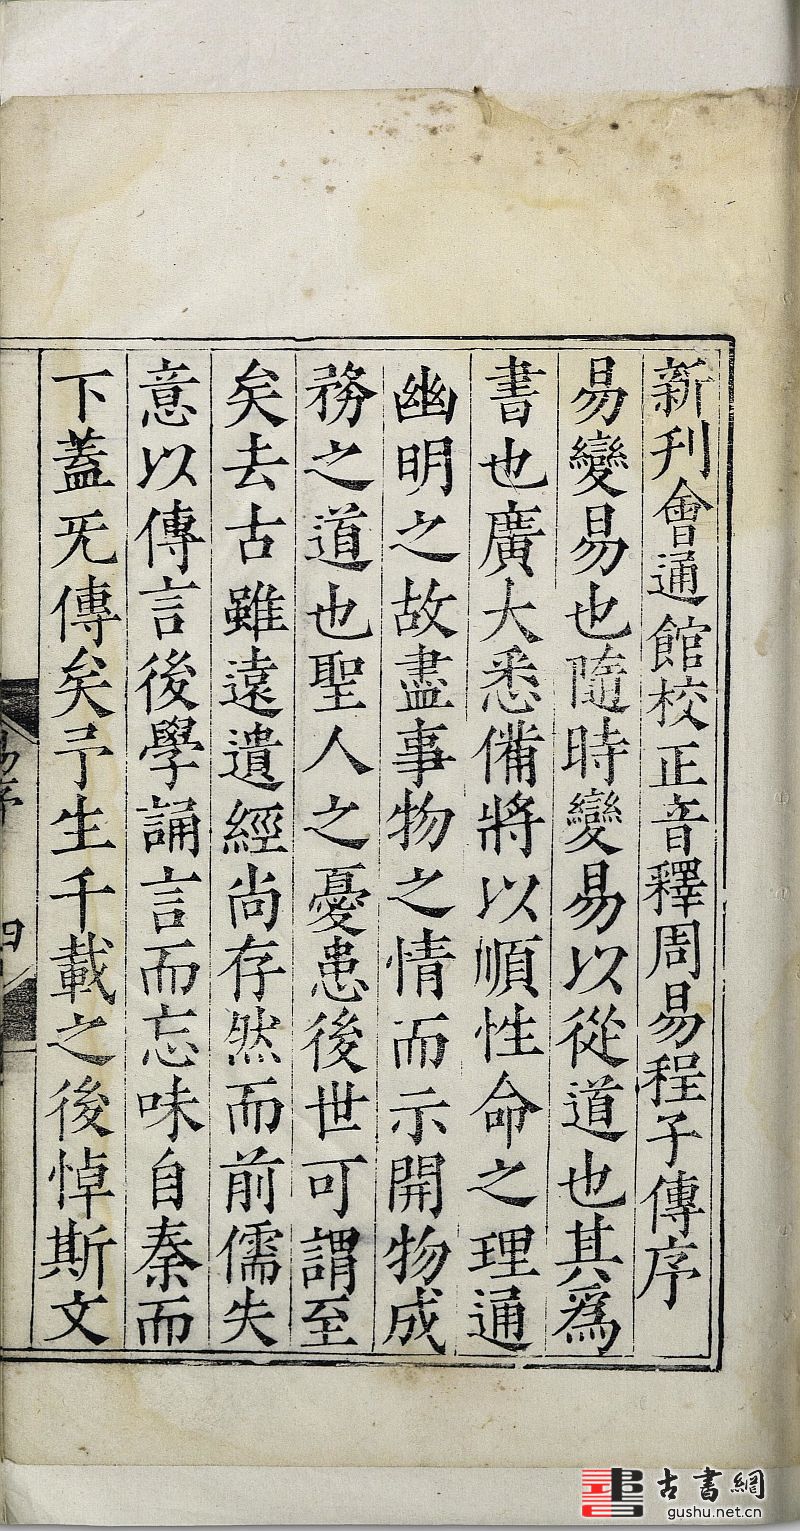 新刋會通館校正音釋周易程子傳序
易變易也隨時變易以從道也其爲
書也廣大悉備將以順性命之理通
幽明之故盡事物之情而示開物成
務之道也聖人之憂患後世可謂至
矣去古雖遠遺經尚存然而前儒失
意以傳言後學誦言而忘味自秦而
下蓋旡傳矣予生千載之後悼斯文
易序
四
古書網
gushu.net.cn